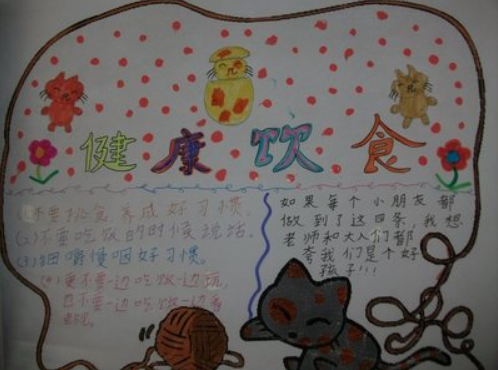 健康饮食
(1)不要挑食养成好习惯.
(2)不要吃饭的时候说话.
(3)细嚼慢咽好习惯.
(4)更不要一边吃饭一边玩,
且不要一边吃饭一边看
如果每个小朋友都
做到了这四条,我想
老师和大人们都
夸我们是个好
孩子!!!